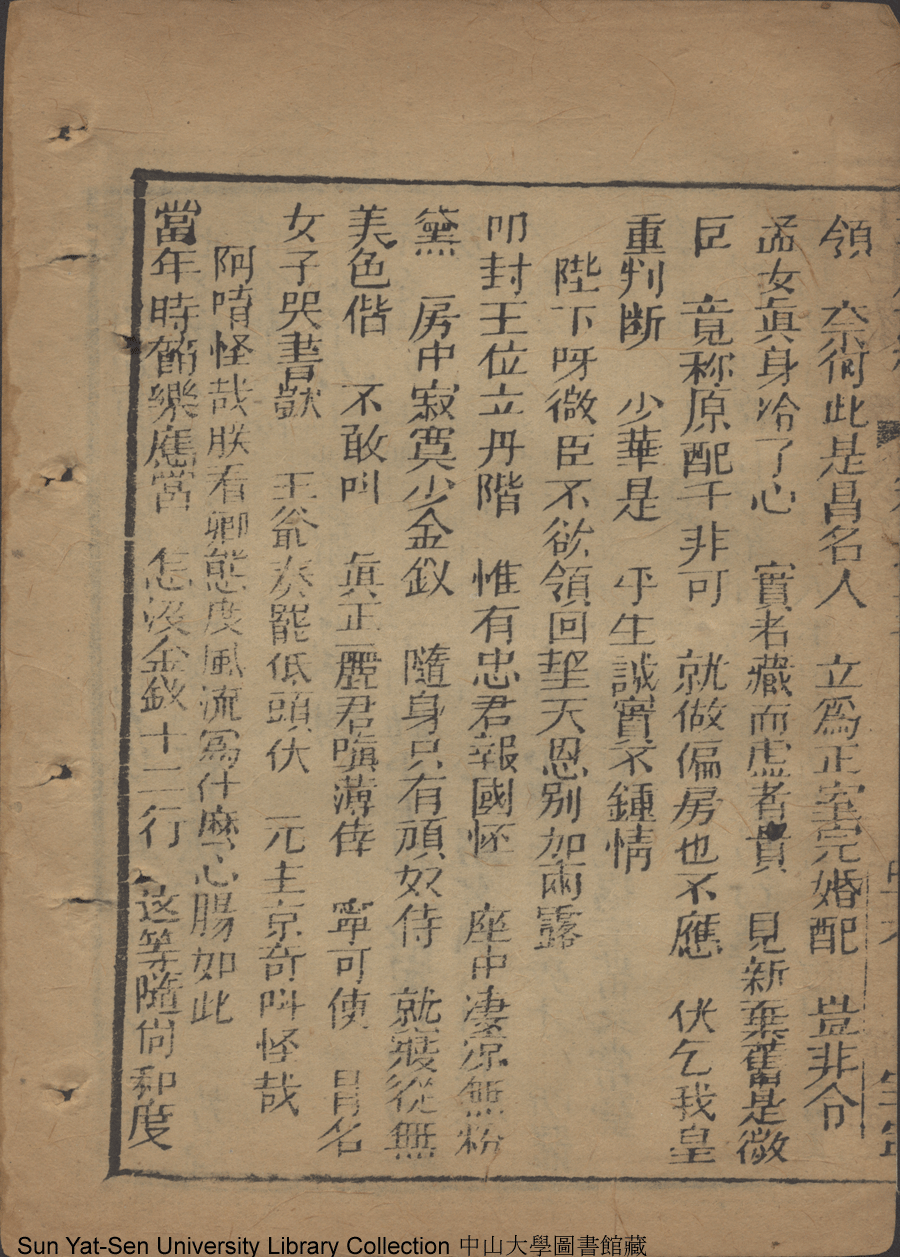 領 奈何此是昌名人 立爲正室完婚配 豈非令
孟女眞身冷了心 實者藏而虛者貴 見新棄舊是微
臣 竟称原配千非可 就做偏房也不應 伏乞我皇
重判断 少華是 乎生誠實不鍾情
陛下呀微臣不欲領回望天恩別加雨露
叩封王位立丹階 惟有忠君報國怀 座中凄凉無粉
黛 房中寂寞少金釵 隨身只有頑奴侍 就寢從無
美色偕 不敢叫 眞正麗君嗔薄倖 寜可使 冒名
女子哭書猷 王爺奏罷低頭伏 元主京奇呌怪哉
阿唷怪哉朕看卿態度風流爲什麽心腸如此
當年時節樂應當 怎没金釵十二行 这等隨尚和度
Sun Yat-Sen University Library Collection 中山大學圖書館藏